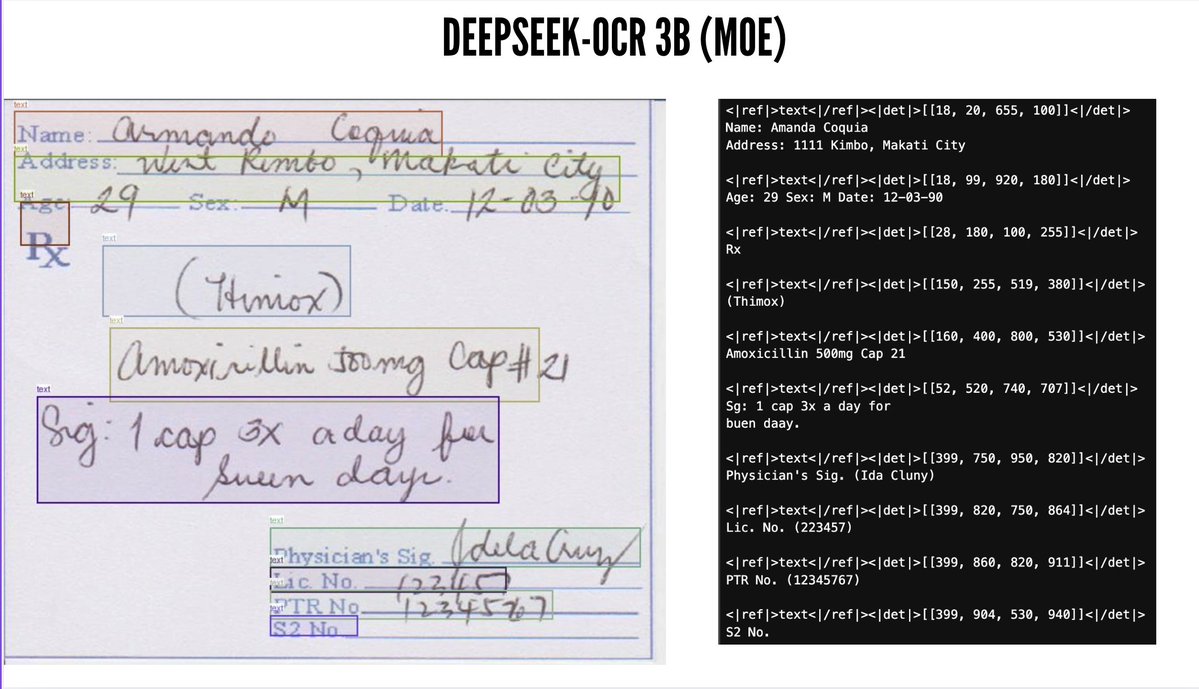 DEEPSEEK-OCR 3B (MOE)
text
Name: Armando Coquia
text
Address: West Rimbo, Makati City
text
Age: 29 Sex: M Date: 12-03-90
Rx
text
(Himox)
text
Amoxicillin 500mg Cap # 21
text
Sig: 1 cap 3x a day for
seven days.
text
Physician's Sig. Jdela Cruz
text
Lic. No. 12345
text
PTR No. 12345767
text
S2 No.
<|ref|>text<|/ref|><|det|>[[18, 20, 655, 100]]<|/det|>
Name: Amanda Coquia
Address: 1111 Kimbo, Makati City
<|ref|>text<|/ref|><|det|>[[18, 99, 920, 180]]<|/det|>
Age: 29 Sex: M Date: 12-03-90
<|ref|>text<|/ref|><|det|>[[28, 180, 100, 255]]<|/det|>
Rx
<|ref|>text<|/ref|><|det|>[[150, 255, 519, 380]]<|/det|>
(Thimox)
<|ref|>text<|/ref|><|det|>[[160, 400, 800, 530]]<|/det|>
Amoxicillin 500mg Cap 21
<|ref|>text<|/ref|><|det|>[[52, 520, 740, 707]]<|/det|>
Sg: 1 cap 3x a day for
buen daay.
<|ref|>text<|/ref|><|det|>[[399, 750, 950, 820]]<|/det|>
Physician's Sig. (Ida Cluny)
<|ref|>text<|/ref|><|det|>[[399, 820, 750, 864]]<|/det|>
Lic. No. (223457)
<|ref|>text<|/ref|><|det|>[[399, 860, 820, 911]]<|/det|>
PTR No. (12345767)
<|ref|>text<|/ref|><|det|>[[399, 904, 530, 940]]<|/det|>
S2 No.